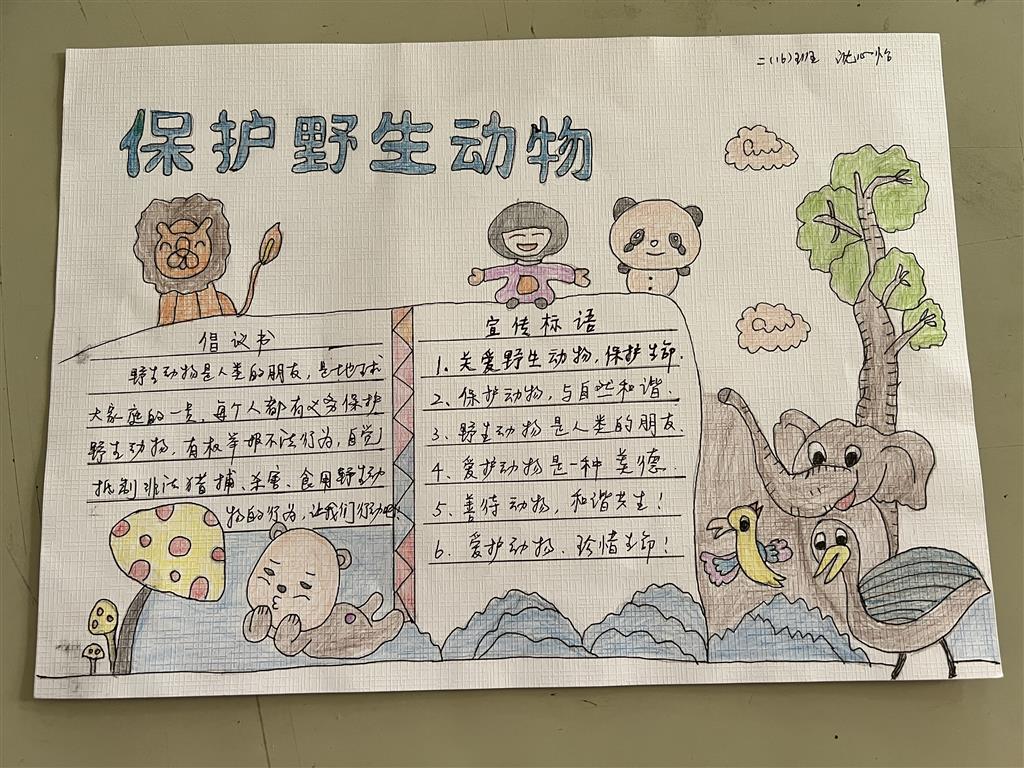 二(16)班 沈心怡
保护野生动物
倡议书
野生动物是人类的朋友，是地球
大家庭的一员，每个人都有义务保护
野生动物，有权举报不法行为，自觉
抵制非法猎捕、杀害、食用野生动
物的行为，让我们行动吧！
宣传标语
1、关爱野生动物，保护生命.
2、保护动物，与自然和谐.
3、野生动物是人类的朋友.
4、爱护动物是一种美德.
5、善待动物，和谐共生！
6、爱护动物、珍惜生命！